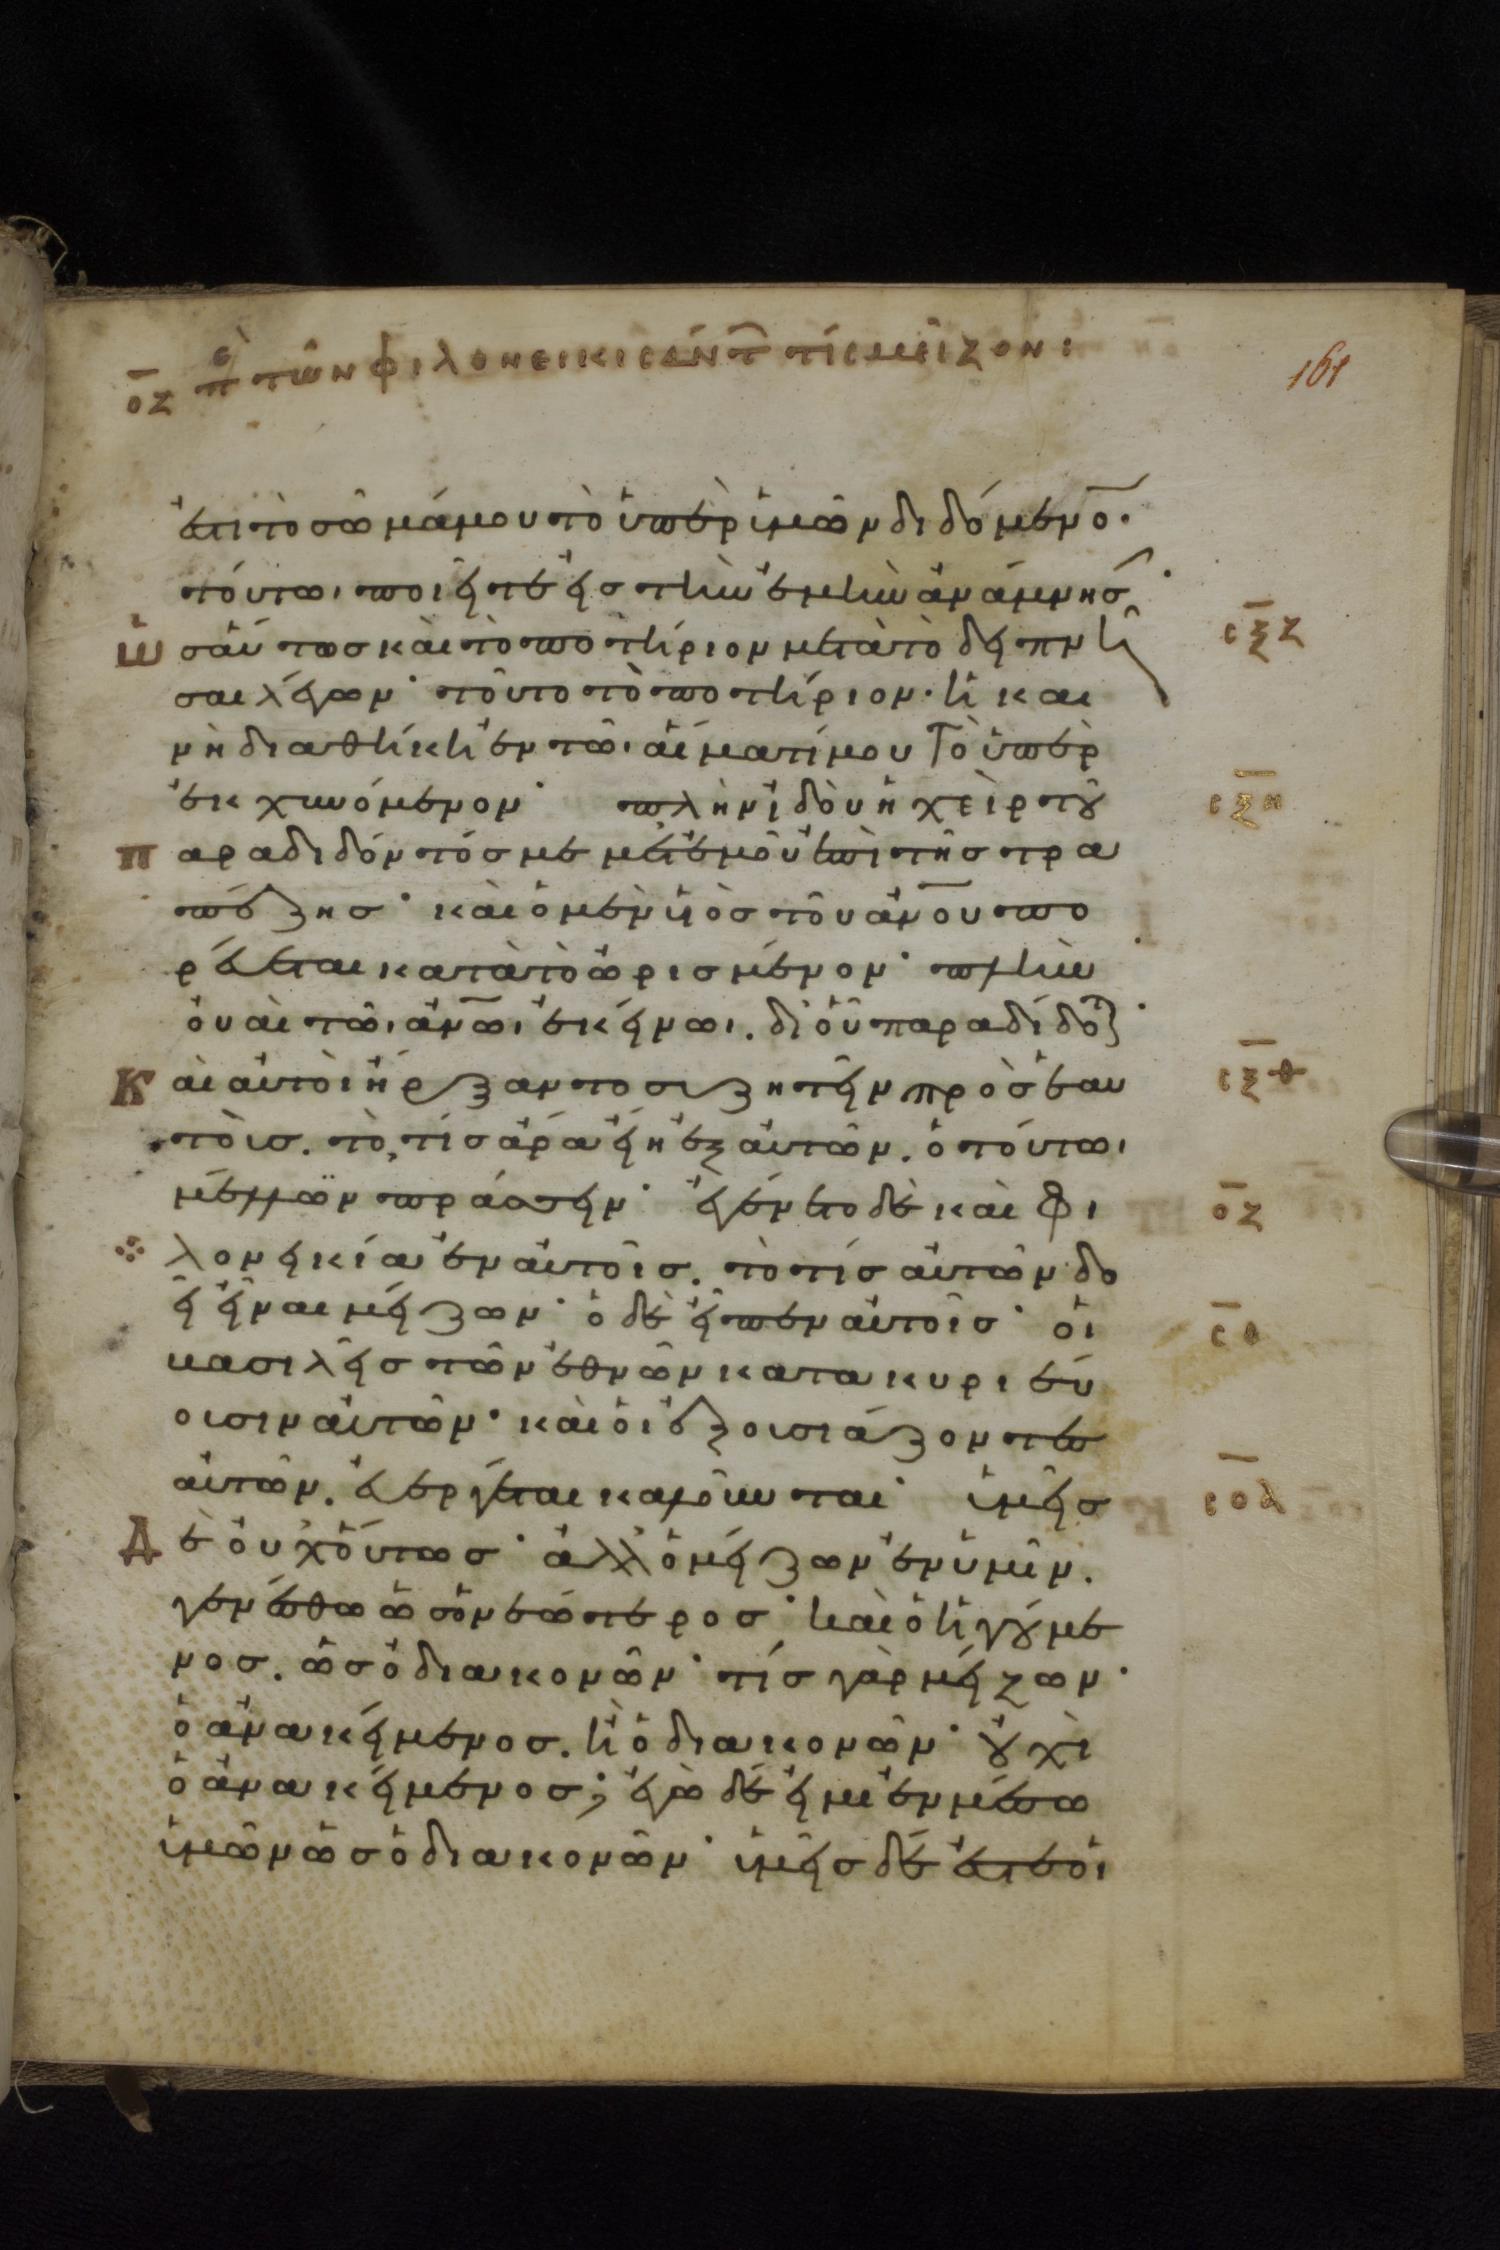 οζ πε των φιλονεικισάντ τίς μείζον:
161
ἐστι τὸ σῶμά μου τὸ ὑπὲρ ἡμῶν διδόμενο̅·
τοῦτω· ποιεῖτε εἰς τὴν ἐμὴν ἀνάμνησ·
σξζ
Ὡσαύτως καὶ τὸ ποτήριον μετὰ τὸ δειπνῆ
σαι λέγων· τοῦτο τὸ ποτήριον· ἡ και
νὴ διαθήκη ἐν τῶ αἵματί μου Τὸ ὑπὲρ
ἐκχυνόμενον· πλὴν ἰδοὺ ἡ χεὶρ τοῦ
σξη
Παραδιδόντός με μετ' ἐμοῦ ἐπὶ τῆς τρα
πέζης· καὶ ὁ μὲν ὑιὸς τοῦ ἀν̅ου πο
ρεύεται κατὰ τὸ ὡρισμένον· πλὴν
οὐαὶ τῶ ἀν̅ω ἐκείνωι. δι' οὗ παραδίδο]·
Καὶ αὐτοὶ ἤρξαντο συζητεῖν πρὸς ἑαυ
σξθ
τοὺς. τὸ, τίς ἄρα εἴη ἐξ αὐτῶν. ὁ τοῦτω
μέλλων πράσσειν· ἐγένετο δὲ καὶ φι
οζ
λονεικία ἐν αὐτοῖς. τὸ τίς αὐτῶν δο
κεῖ εἶναι μείζων· ὁ δὲ εἶπεν αὐτοῖς· οἱ
σο
βασιλεῖς τῶν ἐθνῶν κατακυριεύ
ουσιν αὐτῶν· καὶ οἱ ἐξουσιάζοντες
αὐτῶν. ἐυεργέται καλοῦνται· ὑμεῖς
σοα
Δὲ οὐχ οὕτως· ἀλλ' ὁ μείζων ἐν ὑμῖν.
γενέσθω ὡς ὁ νεώτερος· καὶ ὁ ἡγούμε
νος. ὡς ὁ διακονῶν· τίς γὰρ μείζων·
ὁ ἀνακείμενος. ἢ ὁ διακονῶν· οὐχὶ
ὁ ἀνακείμενος; ἐγὼ δέ εἰμι ἐν μέσω
ὑμῶν ὡς ὁ διακονῶν· ὑμεῖς δέ ἐστε οἱ